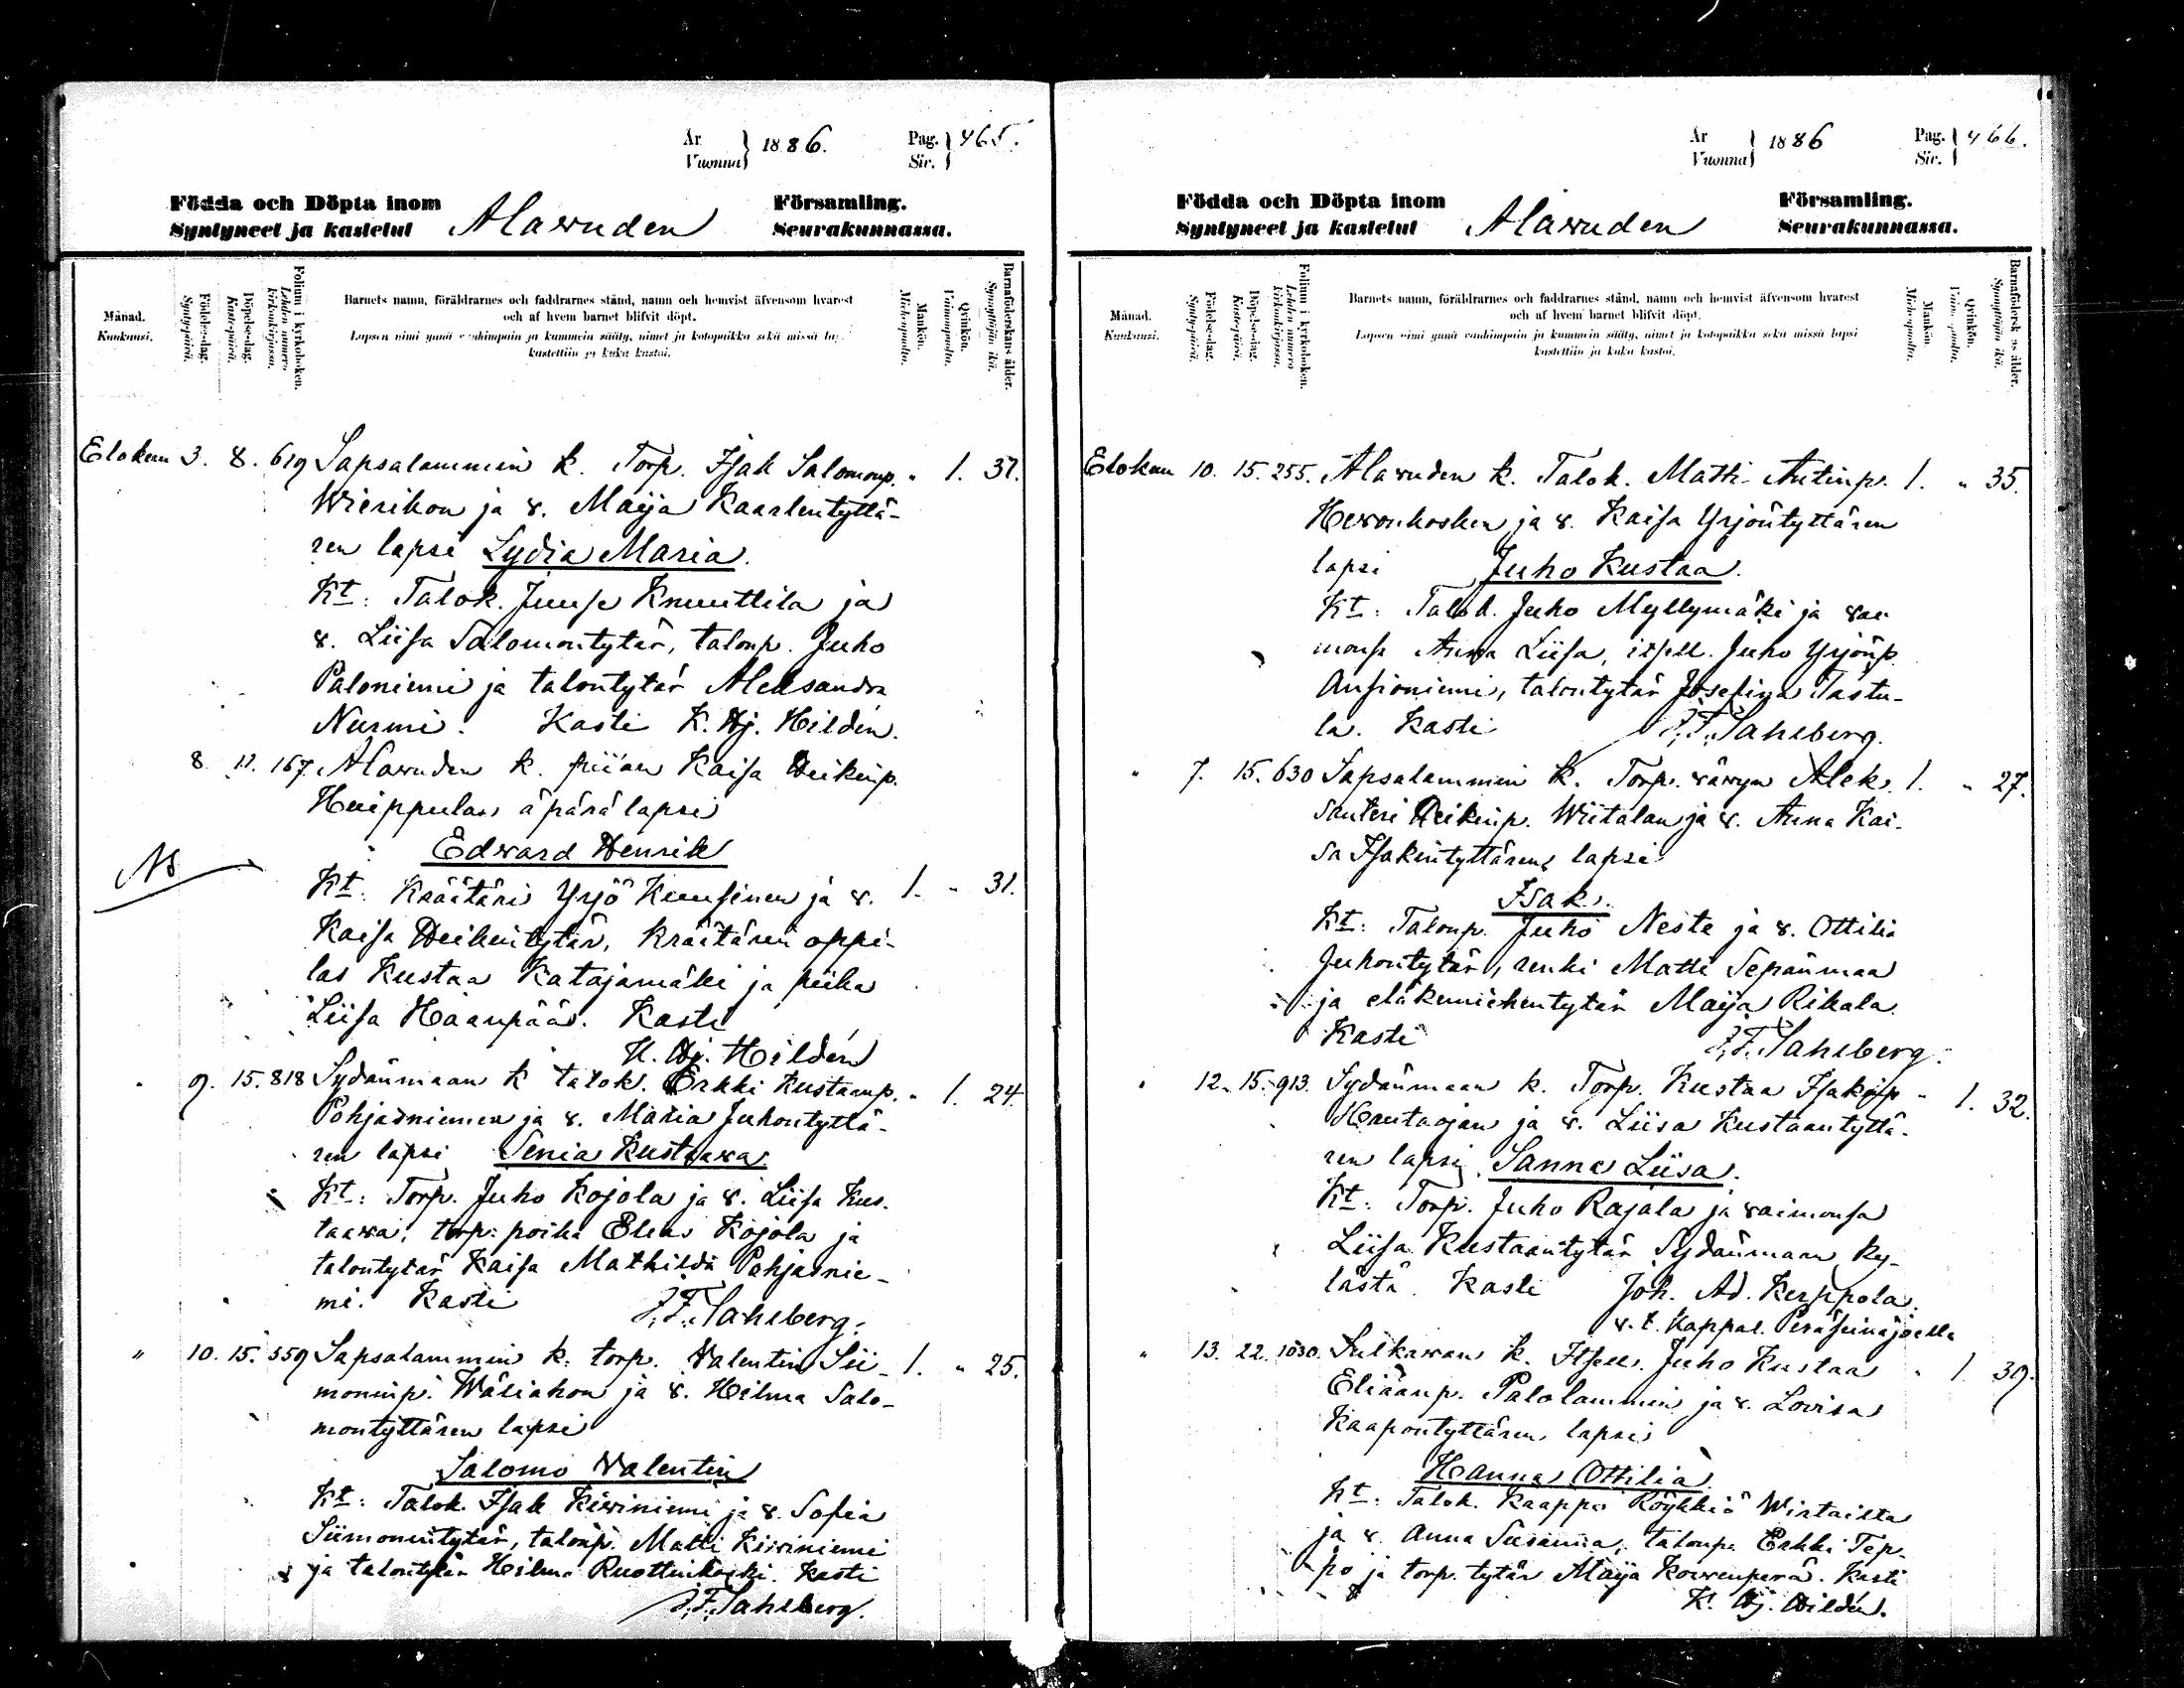 År
Vuonna } 1886.
Pag.
Sir. } 465.
Födda och Döpta inom
Syntyneet ja kastetut
Alawuden
Församling.
Seurakunnassa.
Månad.
Kuukausi.
Födelse-dag.
Synty-päivä.
Döpelse-dag.
Kaste-päivä.
Folium i kyrkoboken.
Lehden numero
kirkonkirjassa.
Barnets namn, föräldrarnes och faddrarnes stånd, namn och hemvist äfvensom hvarest
och af hvem barnet blifvit döpt.
Lapsen nimi ynnä vanhimpain ja kummein sääty, nimet ja kotopaikka sekä missä
kastettiin ja kuka kastoi.
Mankön.
Miehenpuolta.
Qvinkön.
Vaimonpuolta.
Barnaföderskans ålder.
Synnyttäjän ikä.
Elokuu 3. 8. 619 Sapsalammin k. Torp. Isak Salomonp. " 1. 37.
Wierikon ja v. Maija Kaarlentyttä-
ren lapsi Lydia Maria.
Kt: Talok. Juuse Knuuttila ja
v. Liisa Salomontytär, talonp. Juho
Paloniemi ja talontytär Aleksandra
Nurmi. Kasti K. Hj. Hildén.
8. 11. 167. Alawuden k. piian Kaisa Heikinp.
Huippulan äpärä lapsi
Edward Henrik
Kt: Kräätäri Yrjö Kuusinen ja v. 1. " 31.
Kaisa Heikintytär, kräätärin oppi-
las Kustaa Katajamäki ja piika
Liisa Haanpää. Kasti
K. Hj. Hildén
9. 15. 818 Sydänmaan k. talok. Erkki Kustaanp. " 1. 24.
Pohjasniemen ja v. Maria Juhontyttä-
ren lapsi Senia Kustaawa.
Kt: Torp. Juho Kojola ja v. Liisa Kus-
taawa, torp. poika Elias Kojola ja
talontytär Kaisa Mathilda Pohjasnie-
mi. Kasti J. F. Sahlberg.
" 10. 15. 559 Sapsalammin k. torp. Valentin Sii- 1. " 25.
moninp. Wäliahon ja v. Hilma Salo-
montyttären lapsi
Salomo Valentin
Kt: Talok. Isak Kiwiniemi ja v. Sofia
Siimonintytär, talonp. Matti Kiwiniemi
ja talontytär Hilma Ruottinkoski. Kasti
J. F. Sahlberg.
År
Vuonna } 1886
Pag.
Sir. } 466.
Födda och Döpta inom
Syntyneet ja kastetut
Alawuden
Församling.
Seurakunnassa.
Månad.
Kuukausi.
Födelse-dag.
Synty-päivä.
Döpelse-dag.
Kaste-päivä.
Folium i kyrkoboken.
Lehden numero
kirkonkirjassa.
Barnets namn, föräldrarnes och faddrarnes stånd, namn och hemvist äfvensom hvarest
och af hvem barnet blifvit döpt.
Lapsen nimi ynnä vanhimpain ja kummein sääty, nimet ja kotopaikka sekä missä lapsi
kastettiin ja kuka kastoi.
Mankön.
Miehenpuolta.
Qvinkön.
Barnaföderskans ålder.
Synnyttäjän ikä.
Elokuu 10. 15. 255. Alawuden k. Talok. Matti Antinp. 1. " 35.
Hewonkosken ja v. Kaisa Yrjöntyttären
lapsi Juho Kustaa.
Kt: Talok. Juho Myllymäki ja vai-
monsa Anna Liisa, itsell. Juho Yrjönp.
Ansioniemi, talontytär Josefina Tastu-
la. Kasti J. F. Sahlberg.
" 7. 15. 630 Sapsalammin k. Torp. wäwyn Alek- 1. " 27.
santeri Heikinp. Wiitalan ja v. Anna Kai-
sa Isakintyttären lapsi
Isak.
Kt: Talonp. Juho Neste ja v. Ottilia
Juhontytär, renki Matti Sepänmaa
ja eläkemiehentytär Maija Rihala.
Kasti J. F. Sahlberg.
" 12. 15. 913. Sydänmaan k. Torp. Kustaa Isakinp. " 1. 32.
Hautaojan ja v. Liisa Kustaantyttä-
ren lapsi Sanna Liisa.
Kt: Torp. Juho Rajala ja vaimonsa
Liisa Kustaantytär Sydänmaan ky-
lästä. Kasti Joh. Ad. Kerppola.
v. t. Kappal. Peräseinäjoella
" 13. 22. 1030. Sulkawan k. Itsell. Juho Kustaa " 1. 39.
Eliaanp. Palolammin ja v. Lovisa
Kaapontyttären lapsi
Hanna Ottilia.
Kt: Talok. Kaappo Röykkiö Wirtailta
ja v. Anna Susanna, talonp. Erkki Tep-
po ja torp. tytär Maija Koivenperä. Kasti
K. Hj. Hildén.